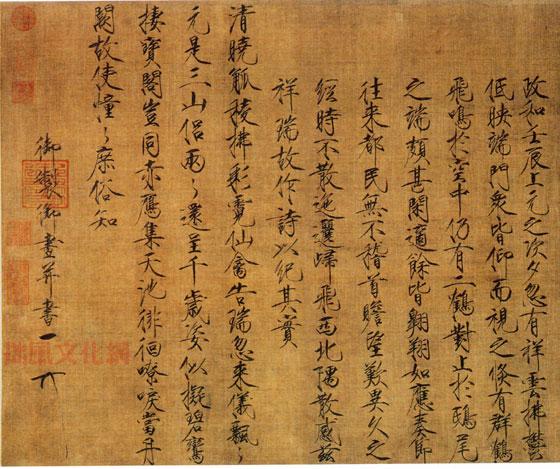 政和壬辰上元之次夕忽有祥雲拂鬱
低映端門衆皆仰而視之倏有群鶴
飛鳴於空中仍有二鶴對止於鴟尾
之端頗甚閑適餘皆翱翔如應奏節
往來都民無不稽首瞻望歎異久之
經時不散迤邐歸飛西北隅散感茲
祥瑞故作詩以紀其實
清曉觚稜拂彩霓仙禽告瑞忽來儀飄〻
元是三山侶兩〻還呈千歲姿似擬碧鸞
棲寶閣豈同赤鴈集天池徘徊嘹唳當丹
闕故使憧〻庶俗知
御製御畫并書
文化網